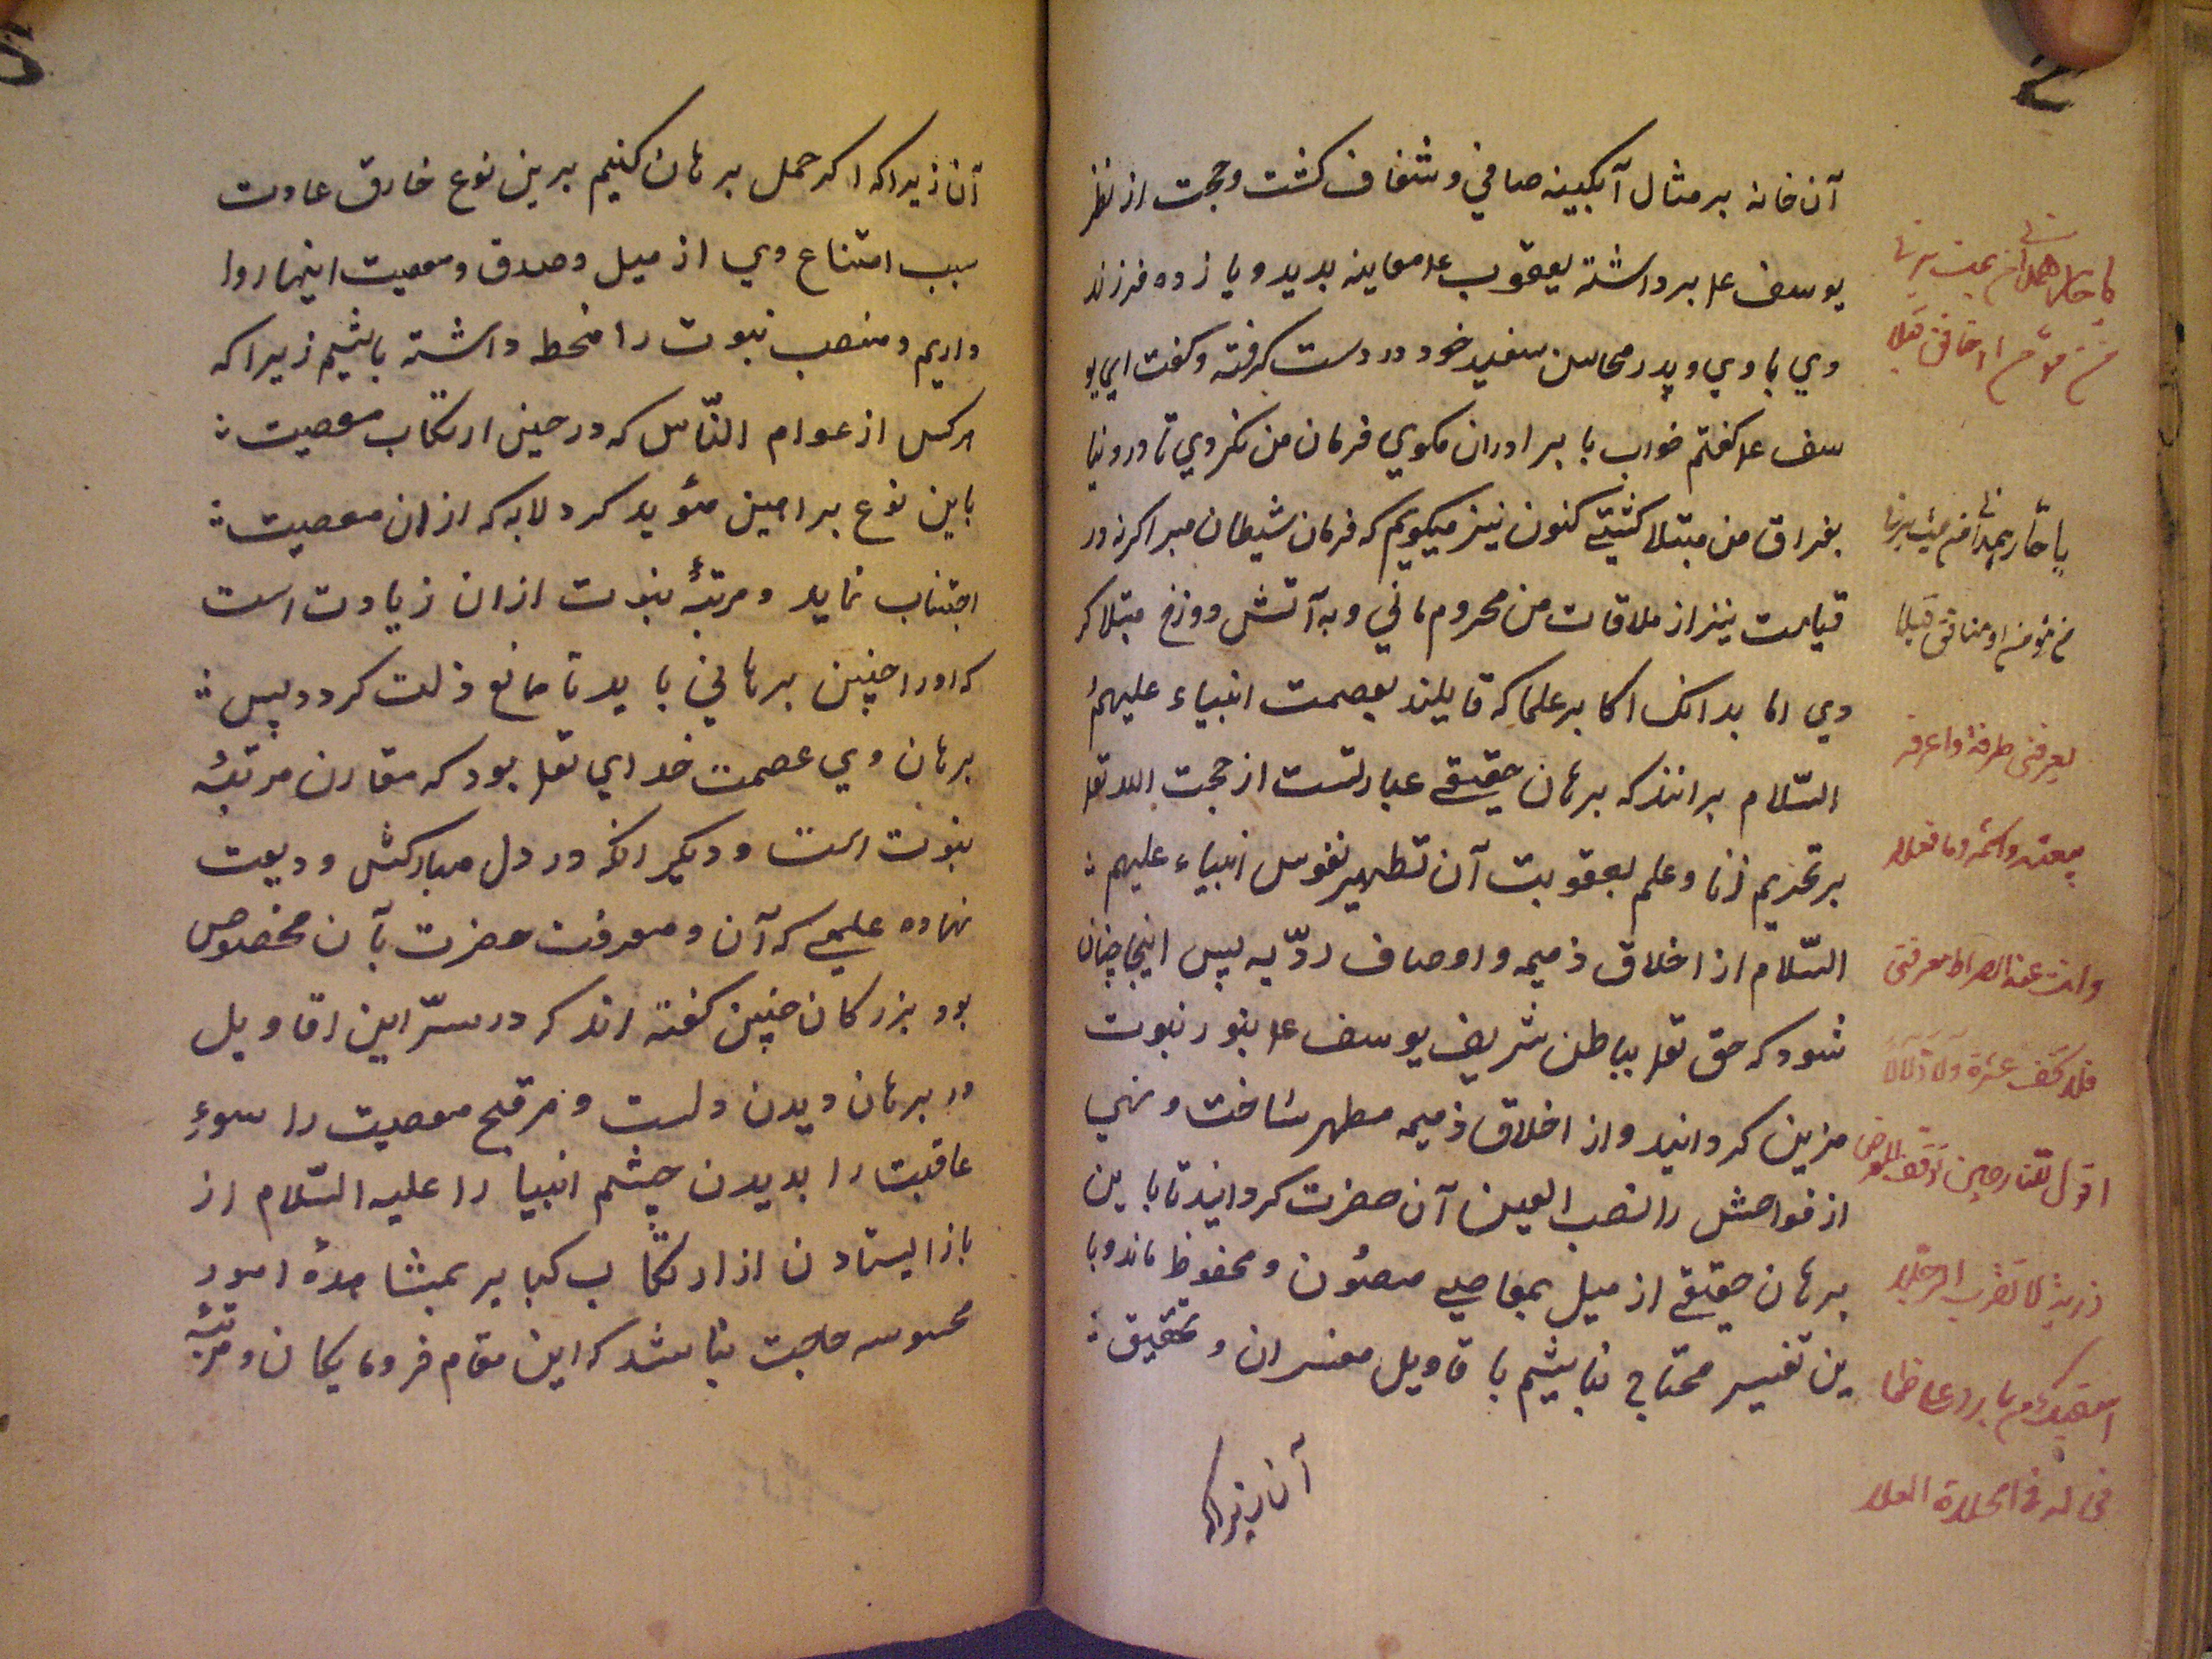 آن خانه بر مثال آبكينه صافي و شفاف كشت و حجت از نظر
يوسف عل برداشته يعقوب عل معاينه بديد و يازده فرزند
وي باوي و پدر محاسن سفيد خود در دست كرفته و كفت اي يو
سف عل كفتم خواب با برادران مكوي فرمان من نكردي تا در دنيا
بفراق من مبتلا كشتي كنون نيز ميكويم كه فرمان شيطان مبر اكر نه در
قيامت نيز از ملاقات من محروم ماني و به آتش دوزخ مبتلا كر
دي اما بدانك اكابر علما كه قايلند بعصمت انبياء عليهم
السّلام برانند كه برهان حقيقي عبارتست از حجت الله تعل
بر تحريم زنا و علم بعقوبت آن تطهير نفوس انبياء عليهم
السّلام از اخلاق ذميمه و اوصاف ردّيه پس اينجا چنان
شود كه حق تعل بباطن شريف يوسف عل بنور نبوت
مزين كردانيد و از اخلاق ذميمه مطهر ساخت و نهي
از فواحش را نصب العين آن حضرت كردانيد تا باين
برهان حقيقي از ميل بمعاصي مصئون و محفوظ ماند و با
ين تفسير محتاج نباشيم با قاويل مفسران و تحقيق
آن زيراكه
يا حار همدان من يمت يرني
من مؤمن او منافق قبلا
يا حار همدان من يمت يرني
من مؤمن او منافق قبلا
يعرفني طرفه و اعرفه
بعينه و اسمه و ما فعلا
وانت عند الصراط معرفتي
فلا تخف عثرة ولا زللا
اقول للنار حين توقف للعرض
ذريه لا تقربي الرجلا
اسقيك من بارد على ظما
في الحلاوة العسلا
آن زيراكه اكر حمل برهان كنيم برين نوع خارق عادت
سبب امتناع وي از ميل و صدق و معصيت اينها روا
داريم و منصب نبوت را منحط داشته باشيم زيرا كه
هركس از عوام النّاس كه در حين ارتكاب معصيت
باين نوع براهين مئويد كردد لابد كه ازان معصيت
اجتناب نمايد و مرتبهٔ نبوت ازان زيادت است
كه اورا چنين برهاني بايد تا مانع ذلت كردد پس
برهان وي عصمت خداي تعل بود كه مقارن مرتبهٔ
نبوت است و ديكر انكه در دل مباركش وديعت
نهاده علمي كه آن و معرفت حضرت بآن مخصوص
بود بزركان چنين كفته اند كه در سرّ اين اقاويل
در برهان ديدن دلست و مر قبح معصيت را سوء
عاقبت را بديدن چشم انبيا را عليه السّلام از
باز ايستادن از ارتكاب كباير بمشاهدهٔ امور
محسوسه حاجت نباشد كه اين مقام فرومايكان و مرتبهٔ